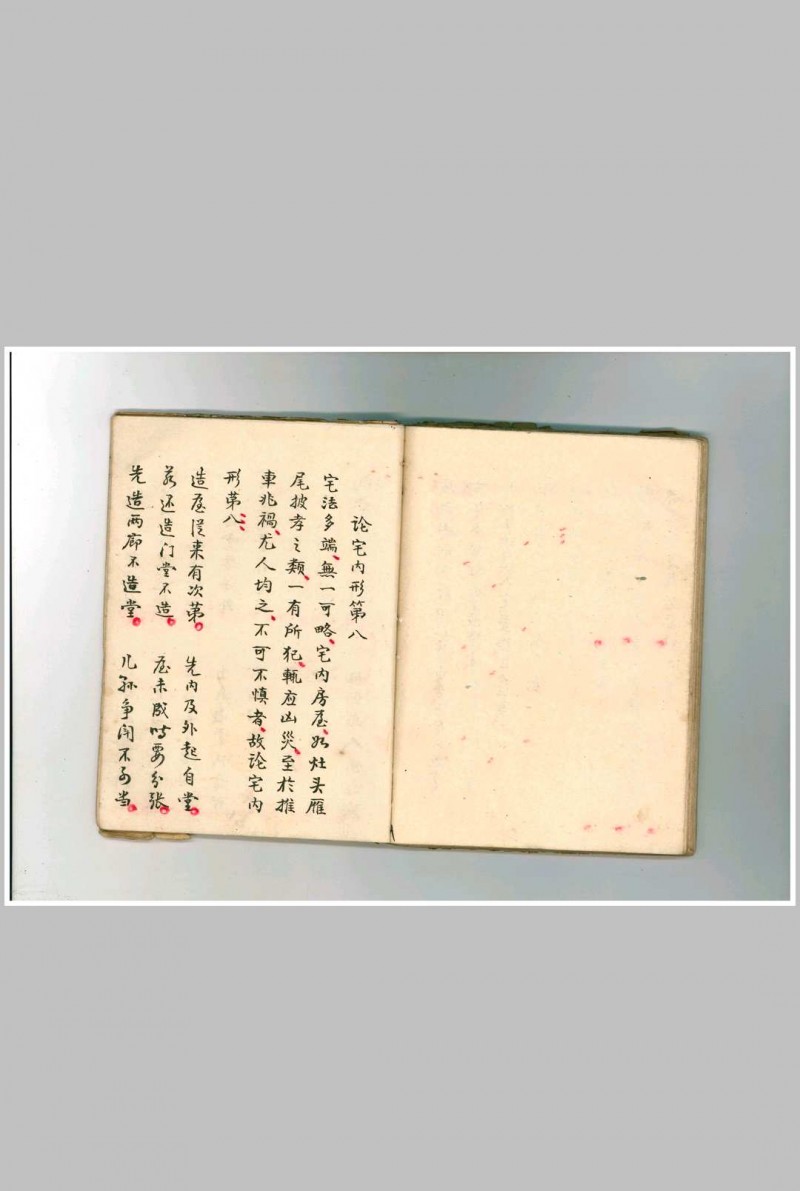 论宅内形第八
宅法多端、無一可略、宅内房屋、如灶头雁
尾披孝之類、一有所犯、輒应凶災、至於推
車兆禍、尤人均之、不可不慎者、故论宅内
形第八、
造屋從来有次第。 先内及外起自堂。
若还造门堂不造。 屋未成时要分张。
先造两廊不造堂。 儿孙争闹不可当。